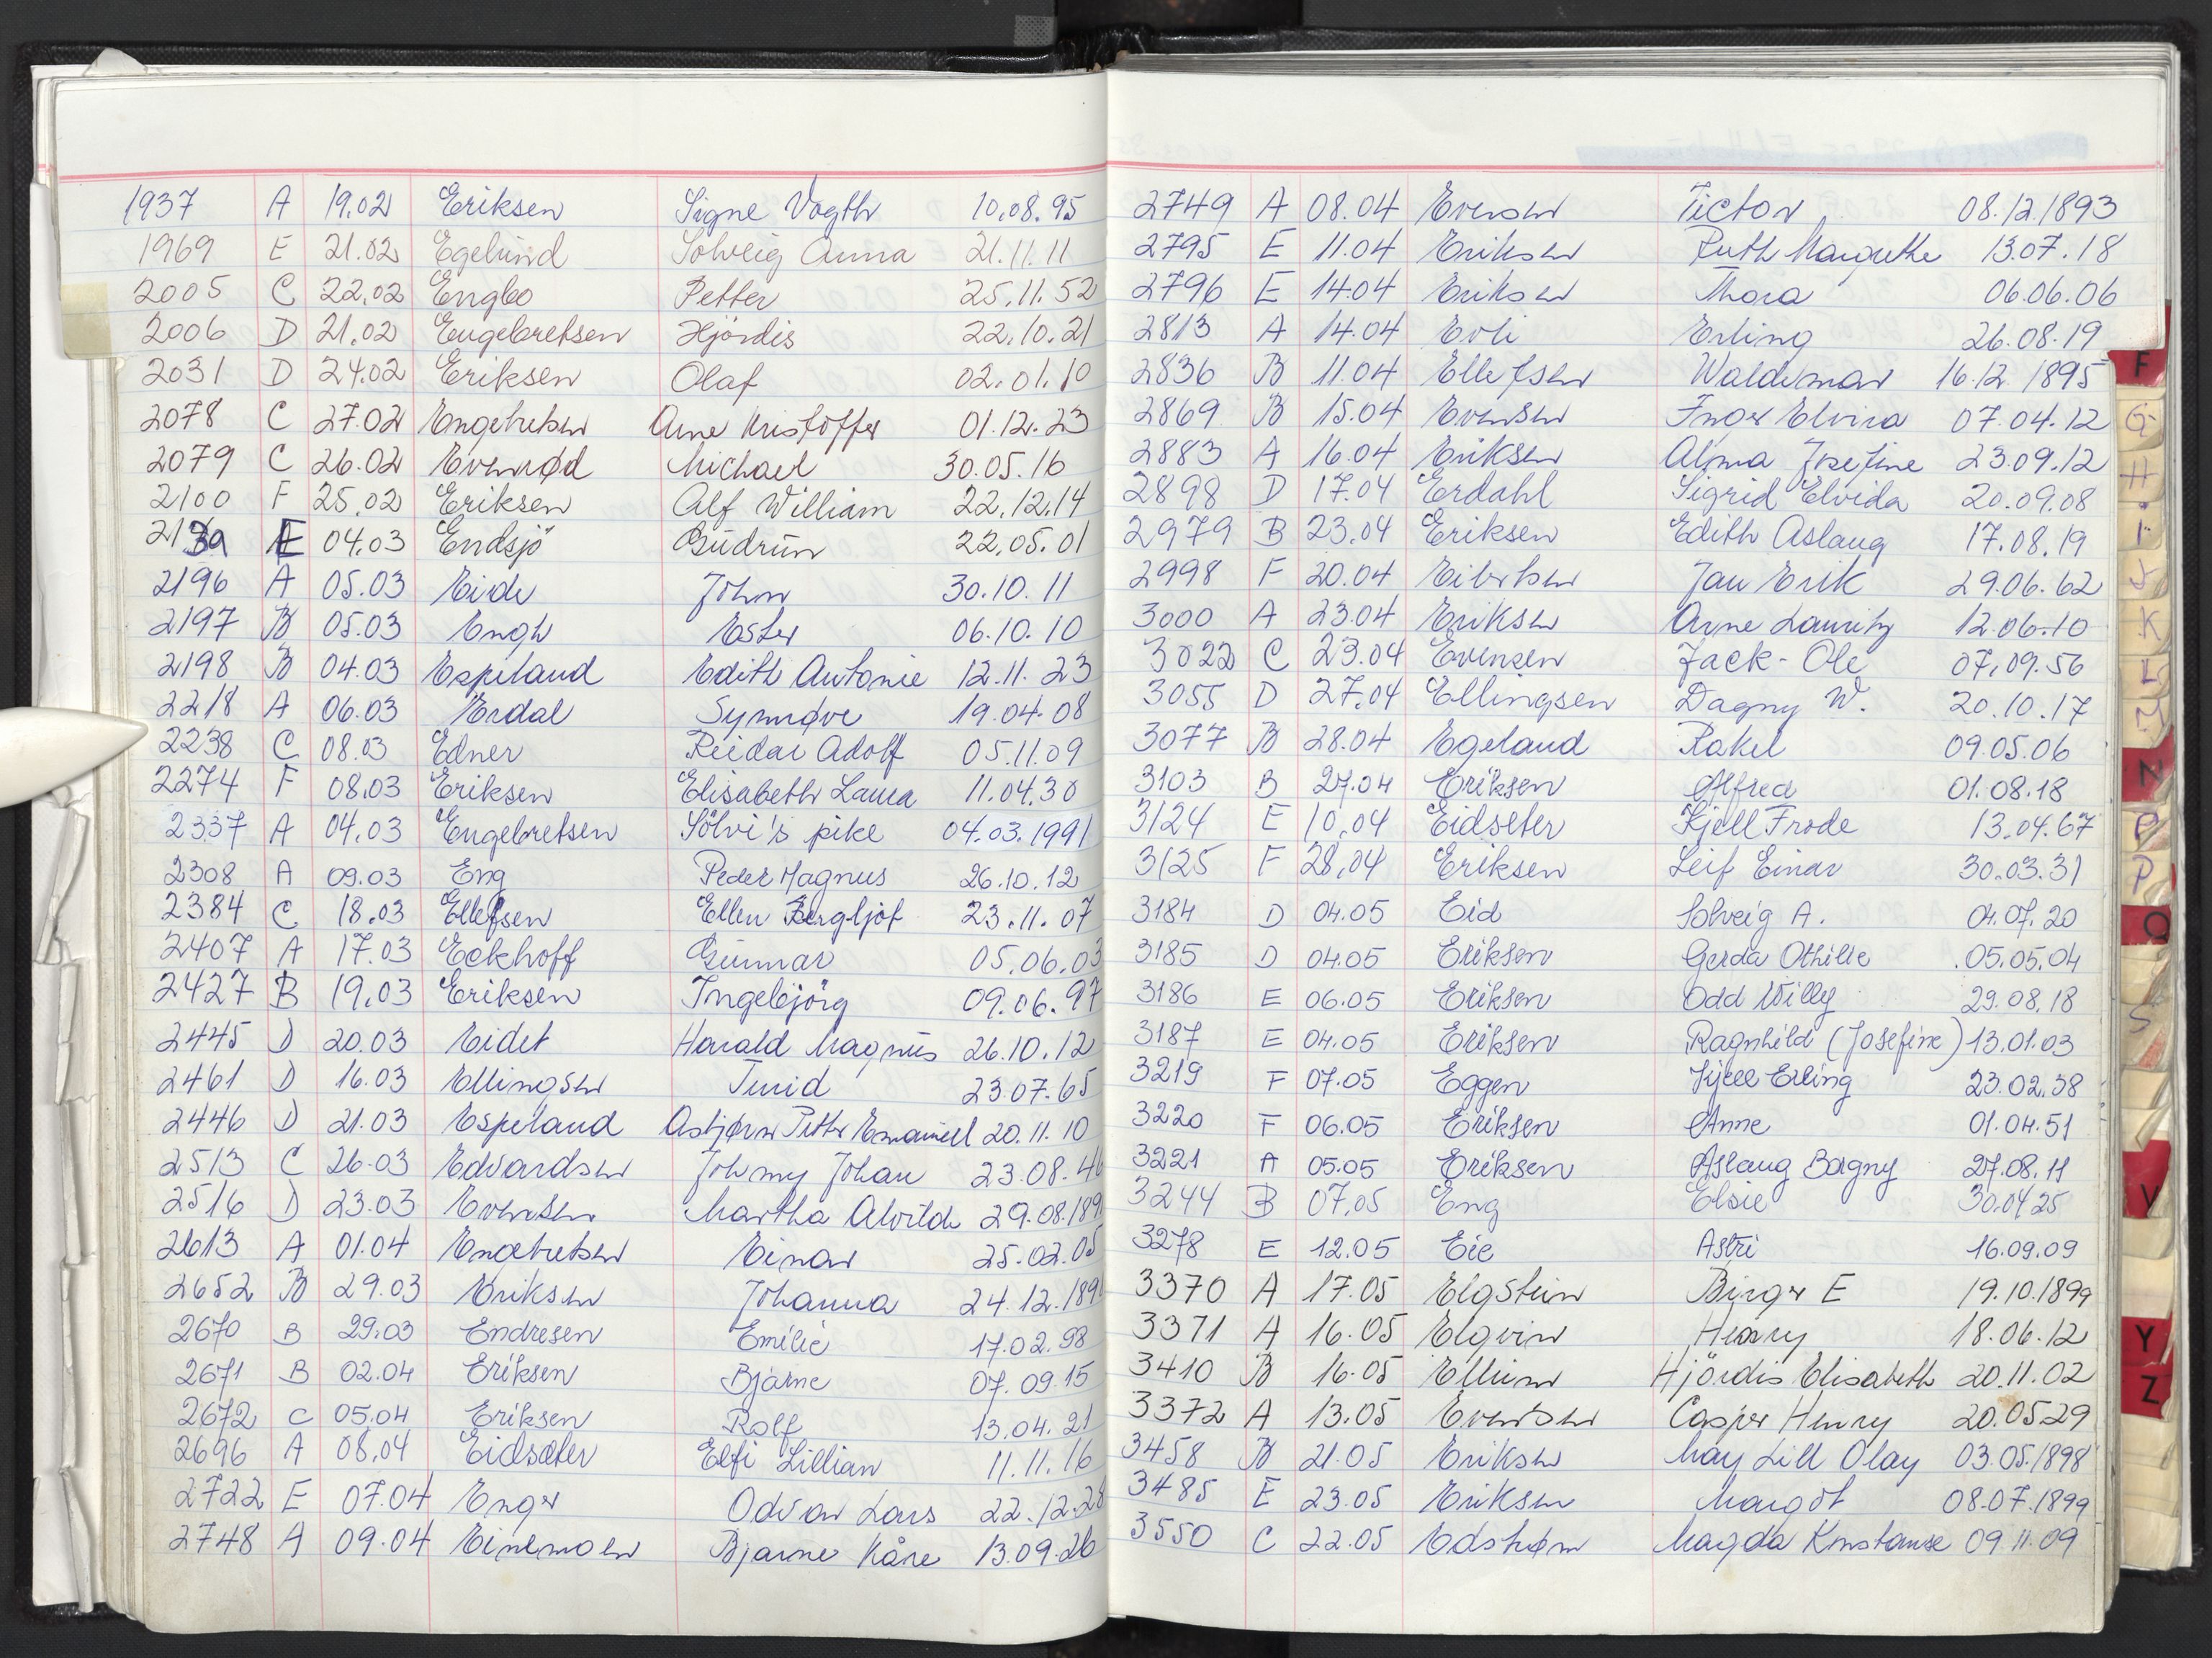 1937 A 19.02 Eriksen Signe Vogth 10.08.95
1969 E 21.02 Egelund Solveig Anna 21.11.11
2005 C 22.02 Engbo Petter 25.11.52
2006 D 21.02 Engebretsen Hjördis 22.10.21
2031 D 24.02 Eriksen Olaf 02.01.10
2078 C 27.02 Engebretsen Arne Kristoffer 01.12.23
2079 C 26.02 Evenrød Michael 30.05.16
2100 F 25.02 Eriksen Alf William 22.12.14
E 04.03 Endsjö Gudrun 22.05.01
2196 A 05.03 Eide John 30.10.11
2197 B 05.03 Engh Ester 06.10.10
2198 B 04.03 Espeland Edith Antonie 12.11.23
2218 A 06.03 Erdal Synnøve 19.04.08
2238 C 08.03 Edner Reidar Adolf 05.11.09
2274 F 08.03 Eriksen Elisabeth Laura 11.04.30
2337 A 04.03 Engebretsen Sölvi's pike 04.03.1991
2308 A 09.03 Eng Peder Magnus 26.10.12
2384 C 18.03 Ellefsen Ellen Bergljot 23.11.07
2407 A 17.03 Eckhoff Gunnar 05.06.03
2427 B 19.03 Eriksen Ingebjörg 09.06.97
2445 D 20.03 Eidet Harald Magnus 26.10.12
2461 D 16.03 Ellingsen Turid 23.07.65
2446 D 21.03 Espeland Asbjørn Petter Emanuel 20.11.10
2513 C 26.03 Edvardsen Johnny Johan 23.08.46
2516 D 23.03 Evensen Martha Alvilde 29.08.189
2613 A 01.04 Engebretsen Einar 25.02.05
2652 B 29.03 Eriksen Johanna 24.12.189
2670 B 29.03 Endresen Emilie 17.02.98
2671 B 02.04 Eriksen Bjarne 07.09.15
2672 C 05.04 Eriksen Rolf 13.04.21
2696 A 08.04 Eidsæter Elfi Lillian 11.11.16
2722 E 07.04 Enger Odvar Lars 22.12.28
2748 A 09.04 Einemoen Bjarne Kåre 13.09.26
2749 A 08.04 Evensen Victor 08.12.1893
2795 E 11.04 Eriksen Ruth Margrethe 13.07.18
2796 E 14.04 Eriksen Thora 06.06.06
2813 A 14.04 Evli Erling 26.08.19
2836 B 11.04 Ellefsen Waldemar 16.12 1895
2869 B 15.04 Evensen Inger Elvira 07.04.12
2883 A 16.04 Eriksen Alma Josefine 23.09.12
2898 D 17.04 Erdahl Sigrid Elvida 20.09.08
2979 B 23.04 Eriksen Edith Aslaug 17.08.19
2998 F 20.04 Eilertsen Jan Erik 29.06.62
3000 A 23.04 Eriksen Arne Lauritz 12.06.10
3022 C 23.04 Evensen Jack-Ole 07.09.56
3055 D 27.04 Ellingsen Dagny W. 20.10.17
3077 B 28.04 Egeland Rakel 09.05.06
3103 B 27.04 Eriksen Alfred 01.08.18
3124 E 10.04 Eidseter Kjell Frode 13.04.67
3125 F 28.04 Eriksen Leif Einar 30.03.31
3184 D 04.05 Eid Solveig A. 04.07.20
3185 D 04.05 Eriksen Gerda Othilie 05.05.04
3186 E 06.05 Eriksen Odd Willy 29.08.18
3187 E 04.05 Eriksen Ragnhild (Josefine) 13.01.03
3219 F 07.05 Eggen Kjell Erling 23.02.38
3220 F 06.05 Eriksen Anne 01.04.51
3221 A 05.05 Eriksen Aslaug Bagny 27.08.11
3244 B 07.05 Eng Elsie 30.04.25
3278 E 12.05 Eie Astri 16.09.09
3370 A 17.05 Elgstein Birger E 19.10.1899
3371 A 16.05 Elgvin Henry 18.06.12
3410 B 16.05 Hjördis Elisabeth 20.11.02
3372 A 13.05 Evensen Casper Henry 20.05.29
3458 B 21.05 Eriksen May Lill Olay 03.05.1898
3485 E 23.05 Eriksen Margot 08.07.1899
3550 C 22.05 Edstrøm Magda Konstanse 09.11.09
F
G
H
I
J
K
L
M
N
P
O
S
V
Y
Z